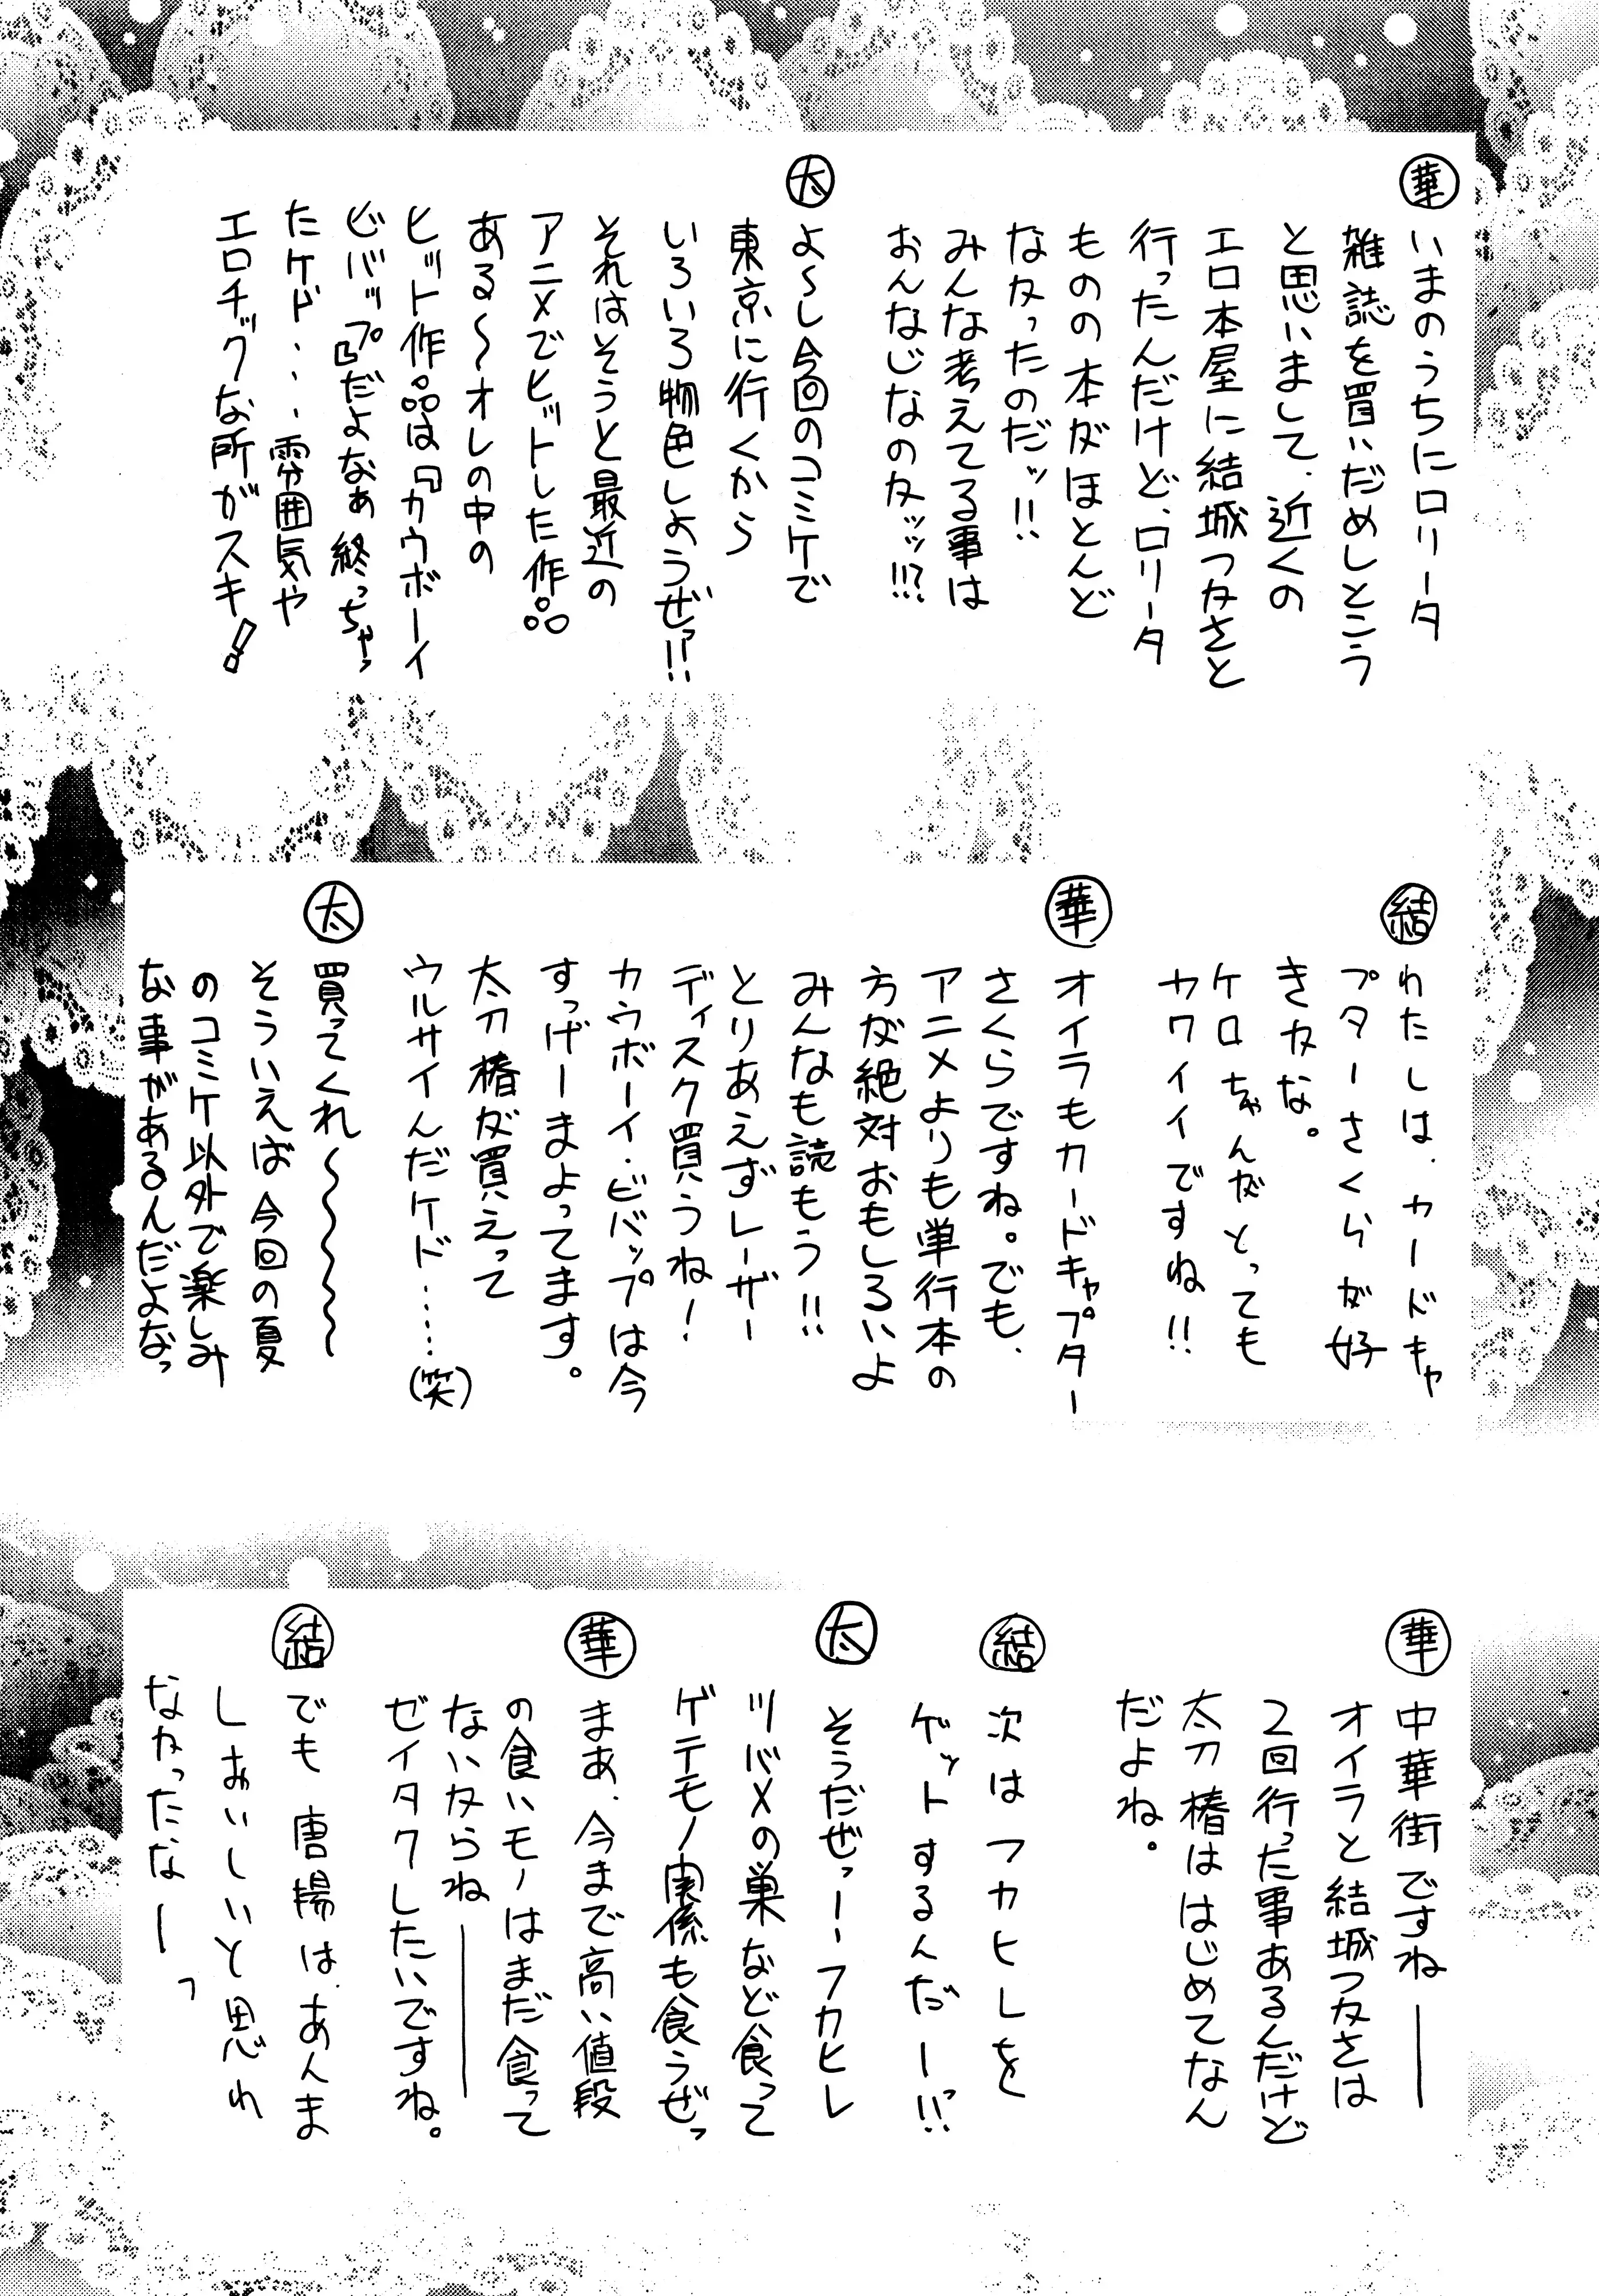 華 いまのうちにロリータ
雑誌を買いだめしとこう
と思いまして、近くの
エロ本屋に結城つかさと
行ったんだけど、ロリータ
ものの本がほとんど
なかったのだッ!!
みんな考えてる事は
おんなじなのカッッ!!?
太 よ〜し今回のコミケで
東京に行くから
いろいろ物色しようぜっ!!
それはそうと最近の
アニメでヒットした作品
ある〜オレの中の
ヒット作品は『カウボーイ
ビバップ』だよなぁ終っちゃっ
たケド・・・雰囲気や
エロチックな所がスキ!
結 わたしは、カードキャ
プターさくらが好
きかな。
ケロちゃんがとっても
カワイイですね!!
華 オイラもカードキャプター
さくらですね。でも、
アニメよりも単行本の
方が絶対おもしろいよ
みんなも読もう!!
とりあえずレーザー
ディスク買うね!
カウボーイ・ビバップは今
すっげーまよってます。
太刀椿が買えって
ウルサイんだケド……(笑)
太 買ってくれ〜〜〜〜〜
そういえば今回の夏
のコミケ以外で楽しみ
な事があるんだよなっ
華 中華街ですね――
オイラと結城つかさは
2回行った事あるんだけど
太刀椿ははじめてなん
だよね。
結 次はフカヒレを
ゲットするんだーっ!!
太 そうだぜっーフカヒレ
ツバメの巣など食って
ゲテモノ関係も食うぜっ
華 まあ、今まで高い値段
の食いモノはまだ食って
ないからね――
ゼイタクしたいですね。
結 でも唐揚は、あんま
しおいしいと思わ
なかったなーっ